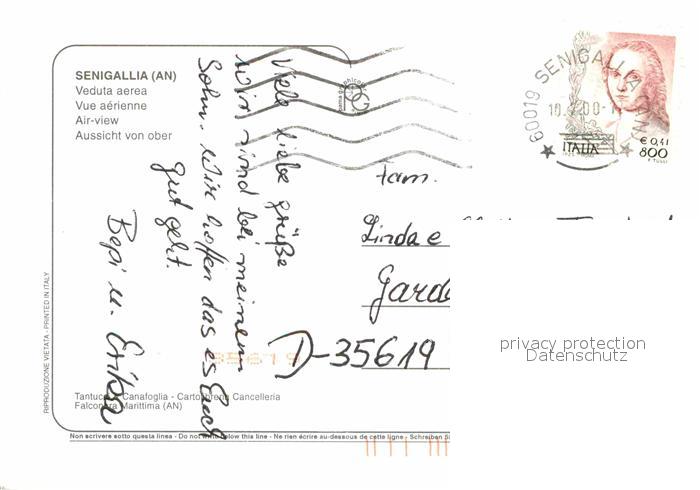 SENIGALLIA (AN)
Veduta aerea
Vue aérienne
Air-view
Aussicht von ober
Viele liebe grüße
wir sind bei meinem
Sohn. wir hoffen das es Euch
gut geht.
Bepi u. Erika
60019 SENIGALLIA (AN)
ITALIA
€ 0,41
800
Fam.
Linda e
Garde
D-35619
35619
privacy protection
Datenschutz
RIPRODUZIONE VIETATA - PRINTED IN ITALY
Tantucci & Canafoglia - Cartolibreria Cancelleria
Falconara Marittima (AN)
Non scrivere sotto questa linea - Do not write below this line - Ne rien écrire au-dessous de cette ligne - Schreiben Si